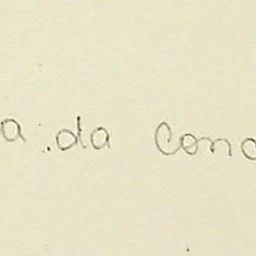 a da conc